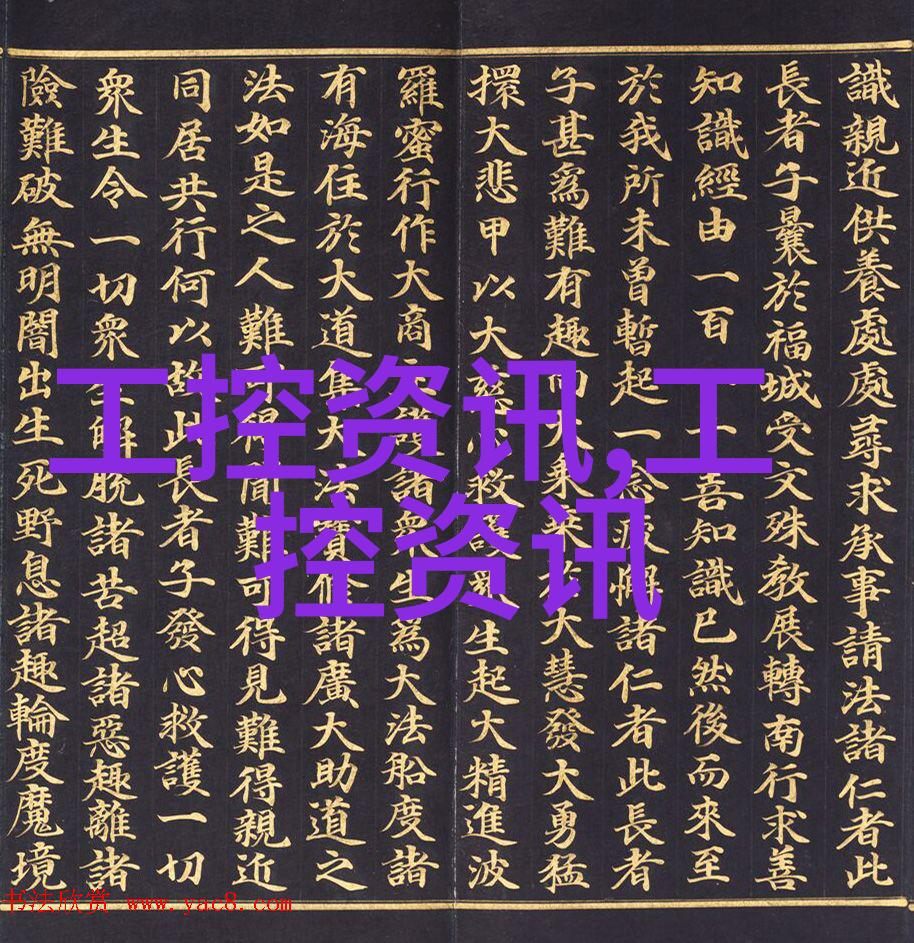 識親近供養處處尋求承事請法諸仁者此
長者子曩於福城受文殊教展轉南行求善
知識經由一百一善知識已然後而來至
於我所未曾暫起一念疲懈諸仁者此長者
子甚爲難有趣向大乘乘於大慧發大勇猛
擐大悲甲以大慈心救護衆生起大精進波
羅蜜行作大商主護諸衆生爲大法船度諸
有海住於大道集大法寶修諸廣大助道之
法如是之人難可得聞難可得見難得親近
同居共行何以故此長者子發心救護一切
衆生令一切衆生解脫諸苦超諸惡趣離諸
險難破無明闇出生死野息諸趣輪度魔境
工控资讯,工
控资讯
书法欣赏 www.yac8.com